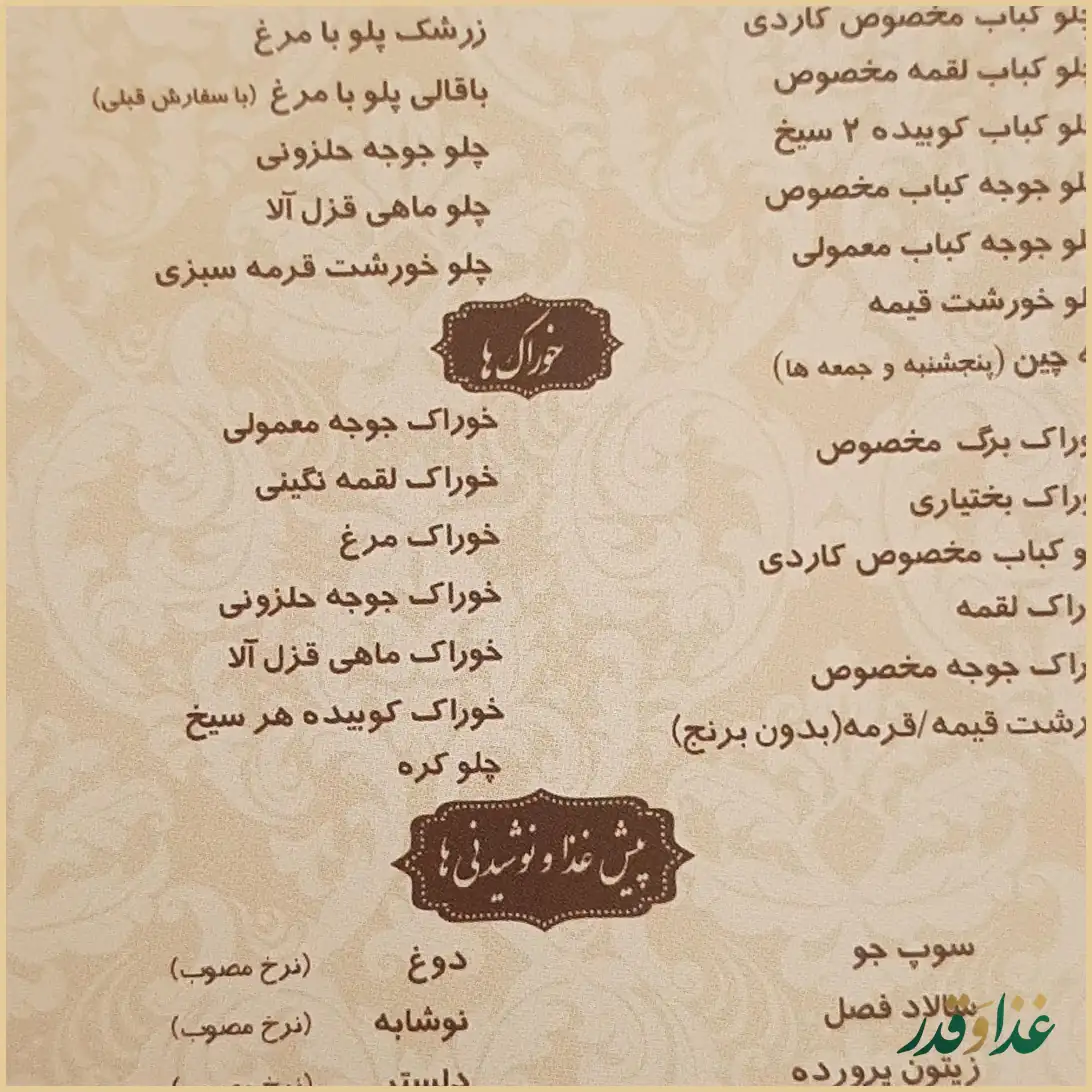 چلو کباب مخصوص کاردی
چلو کباب لقمه مخصوص
چلو کباب کوبیده ۲ سیخ
چلو جوجه کباب مخصوص
لو جوجه کباب معمولی
لو خورشت قیمه
ه چین (پنجشنبه و جمعه ها)
زرشک پلو با مرغ
باقالی پلو با مرغ (با سفارش قبلی)
چلو جوجه حلزونی
چلو ماهی قزل آلا
چلو خورشت قرمه سبزی
خوراک ها
وراک برگ مخصوص
وراک بختیاری
و کباب مخصوص کاردی
راک لقمه
راک جوجه مخصوص
رشت قیمه/قرمه(بدون برنج)
خوراک جوجه معمولی
خوراک لقمه نگینی
خوراک مرغ
خوراک جوجه حلزونی
خوراک ماهی قزل آلا
خوراک کوبیده هر سیخ
چلو کره
پیش غذا و نوشیدنی ها
سوپ جو
سالاد فصل
زیتون پرورده
دوغ (نرخ مصوب)
نوشابه (نرخ مصوب)
دلستر (نرخ مصوب)
غذا و قدر